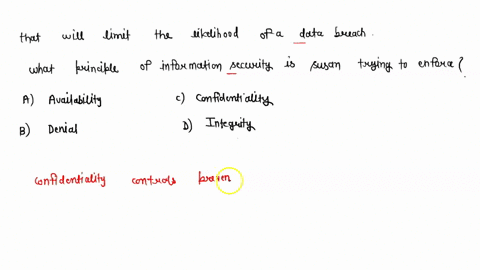 that will limit the likelihood of a data breach.
what principle of information security is susan trying to enforce?
A) Availability C) Confidentiality
B) Denial D) Integrity
confidentiality controls preven